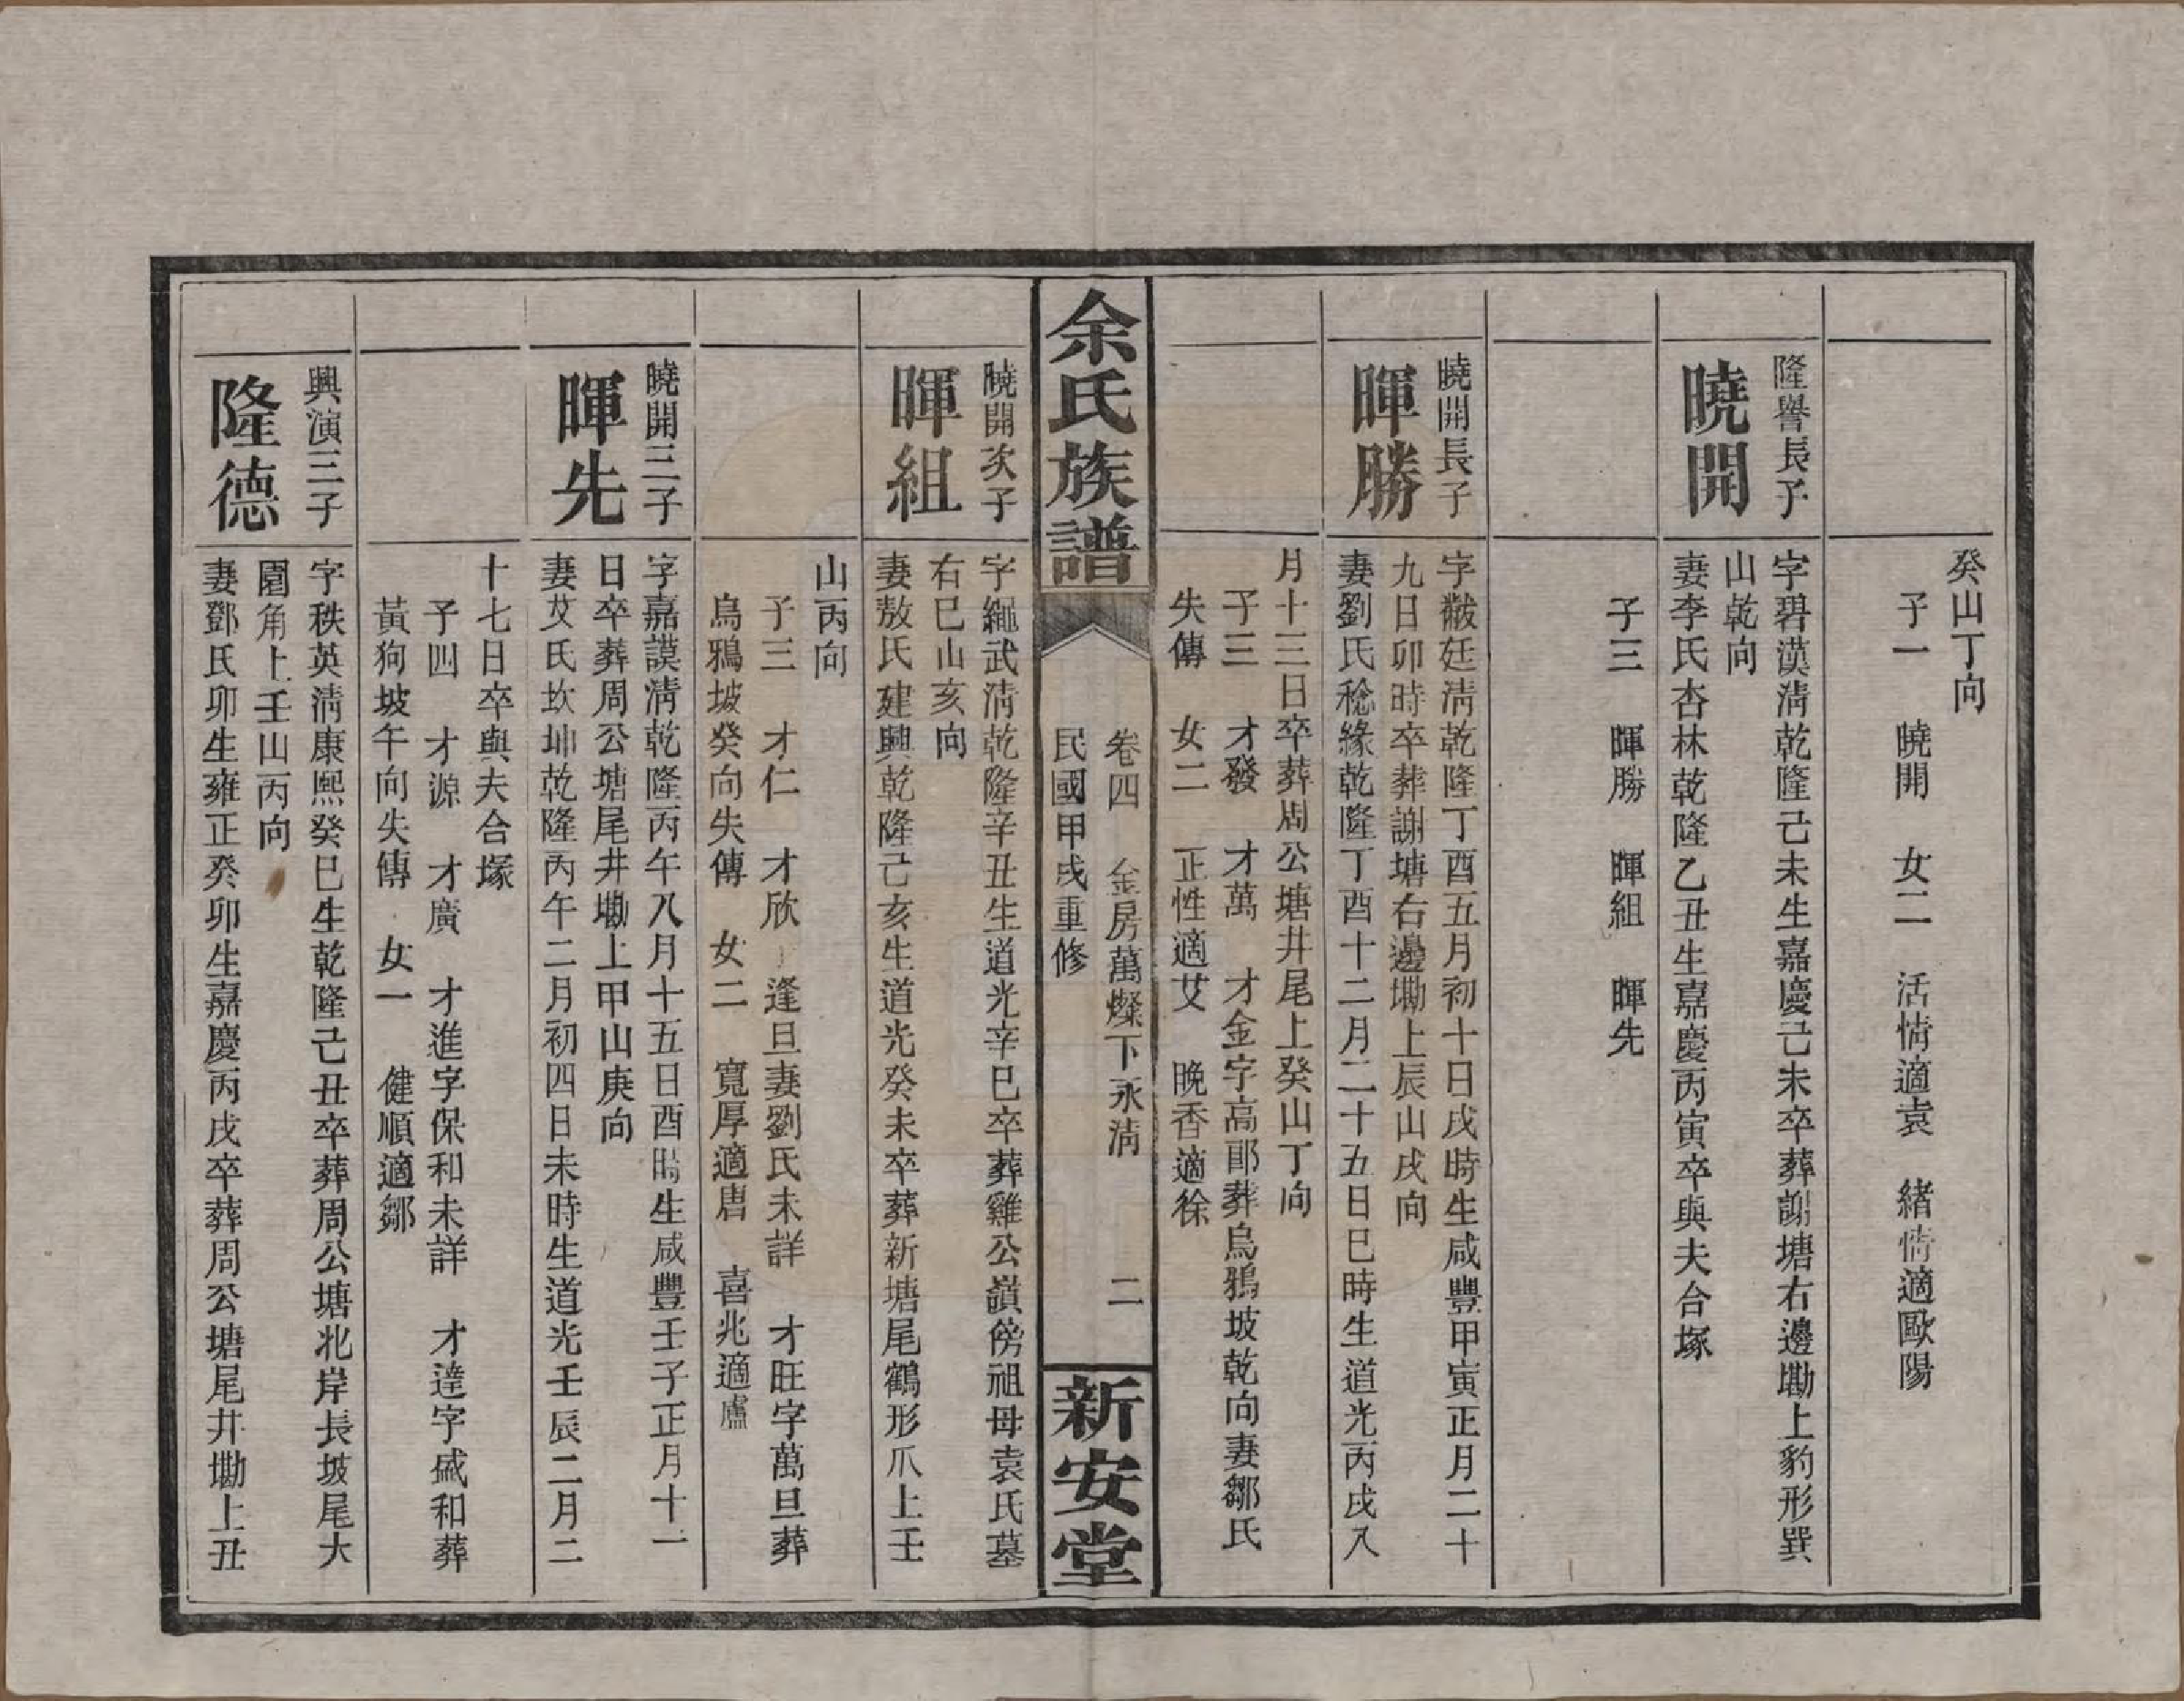 癸山丁向
子一　曉開　女二　活情適袁　緒情適歐陽
隆譽長子
曉開
字碧漢淸乾隆己未生嘉慶己未卒葬謝塘右邊墈上豹形巽
山乾向
妻李氏杏林乾隆乙丑生嘉慶丙寅卒與夫合塚
子三　暉勝　暉組　暉先
曉開長子
暉勝
字黻廷淸乾隆丁酉五月初十日戌時生咸豐甲寅正月二十
九日卯時卒葬謝塘右邊墈上辰山戌向
妻劉氏稔緣乾隆丁酉十二月二十五日巳時生道光丙戌八
月十三日卒葬周公塘井尾上癸山丁向
子三　才發　才萬　才金字高郿葬烏鴉坡乾向妻鄒氏
失傳　女二　正性適艾　晚香適徐
余氏族譜
卷四　金房萬燦下永淸　二
民國甲戌重修
新安堂
曉開次子
暉組
字繩武淸乾隆辛丑生道光辛巳卒葬雞公嶺傍祖母袁氏墓
右巳山亥向
妻敖氏建興乾隆己亥生道光癸未卒葬新塘尾鶴形爪上壬
山丙向
子三　才仁　才欣　逢旦妻劉氏未詳　才旺字萬旦葬
烏鴉坡癸向失傳　女二　寬厚適唐　喜兆適盧
曉開三子
暉先
字嘉謨淸乾隆丙午八月十五日酉時生咸豐壬子正月十一
日卒葬周公塘尾井墈上甲山庚向
妻艾氏坎坤乾隆丙午二月初四日未時生道光壬辰二月二
十七日卒與夫合塚
子四　才源　才廣　才進字保和未詳　才達字盛和葬
黃狗坡午向失傳　女一　健順適鄒
興演三子
隆德
字秩英淸康熙癸巳生乾隆己丑卒葬周公塘北岸長坡尾大
園角上壬山丙向
妻鄧氏卯生雍正癸卯生嘉慶丙戌卒葬周公塘尾井墈上丑